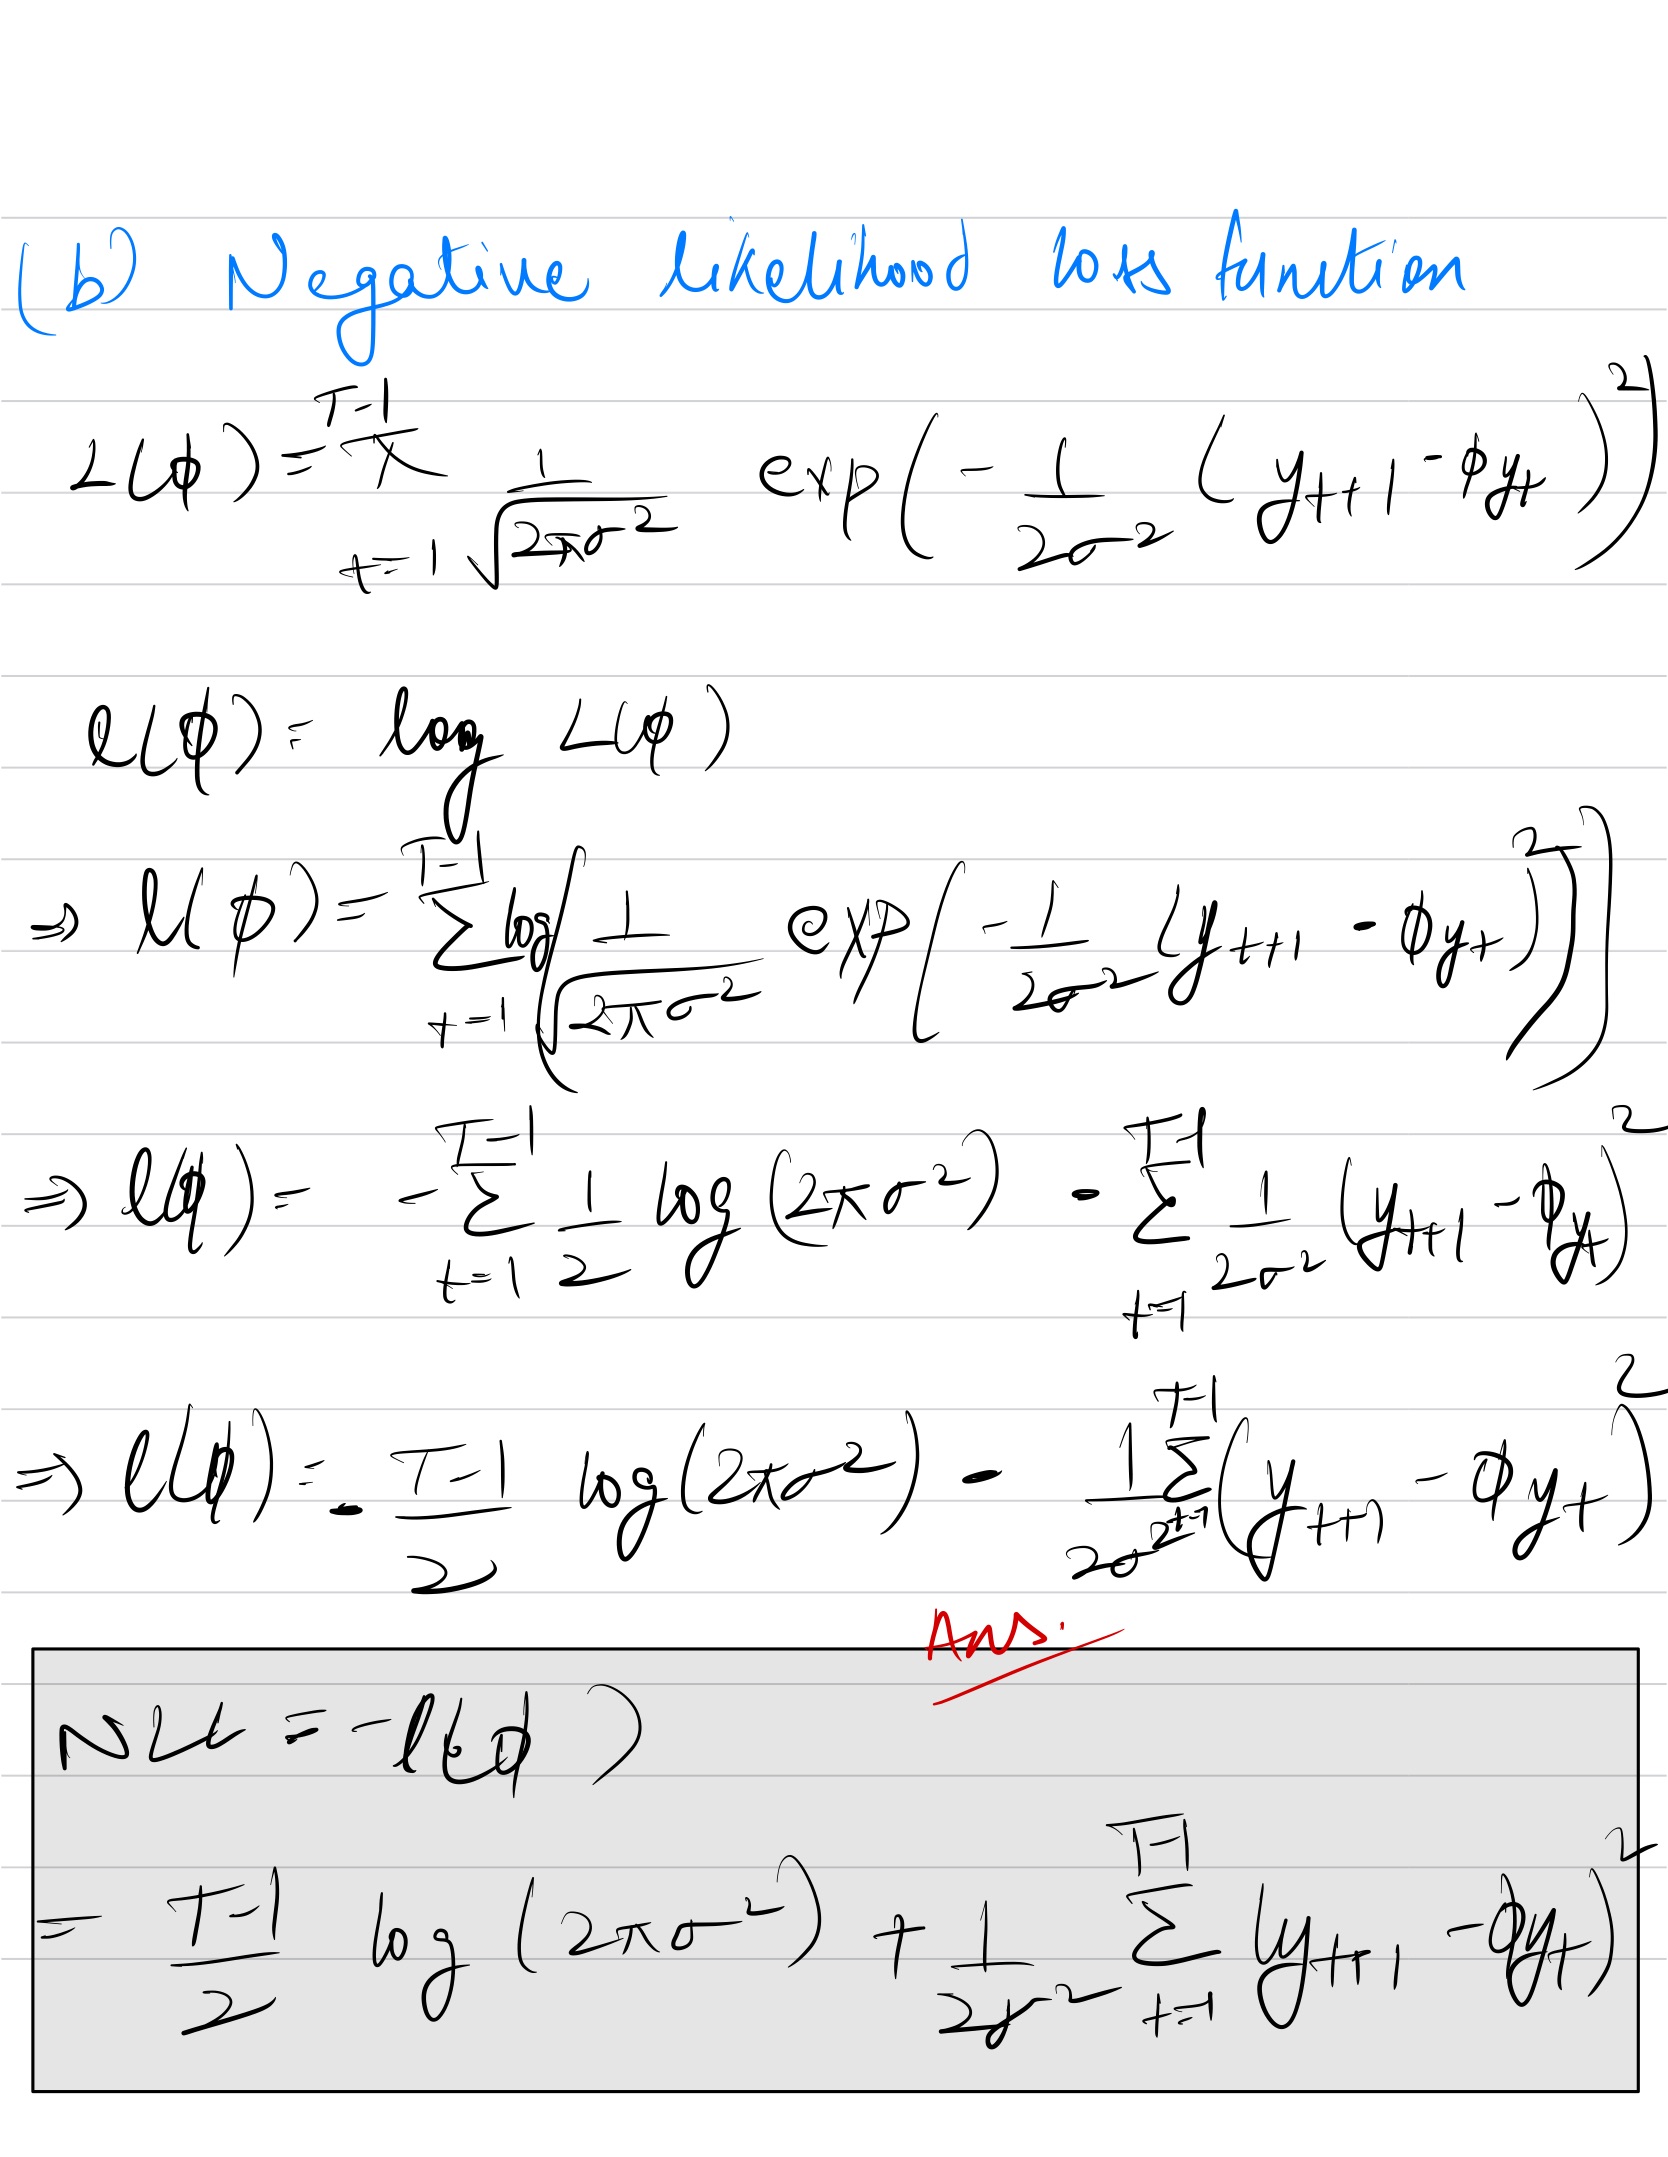 (b) Negative likelihood loss function
L(φ) = ∏_{t=1}^{T-1} 1/√(2πσ²) exp(-1/(2σ²) (y_{t+1} - φy_t)²)
l(φ) = log L(φ)
⇒ l(φ) = ∑_{t=1}^{T-1} log(1/√(2πσ²) exp(-1/(2σ²) (y_{t+1} - φy_t)²))
⇒ l(φ) = -∑_{t=1}^{T-1} 1/2 log(2πσ²) - ∑_{t=1}^{T-1} 1/(2σ²) (y_{t+1} - φy_t)²
⇒ l(φ) = -(T-1)/2 log(2πσ²) - 1/(2σ²) ∑_{t=1}^{T-1} (y_{t+1} - φy_t)²
Ans.
NLL = -l(φ)
= (T-1)/2 log(2πσ²) + 1/(2σ²) ∑_{t=1}^{T-1} (y_{t+1} - φy_t)²